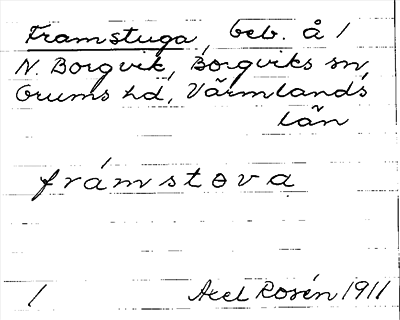 Framstuga, beb. å /
N. Borgvik, Borgviks sn,
Grums hd, Värmlands
län
frámstova
/ Axel Rosén 1911